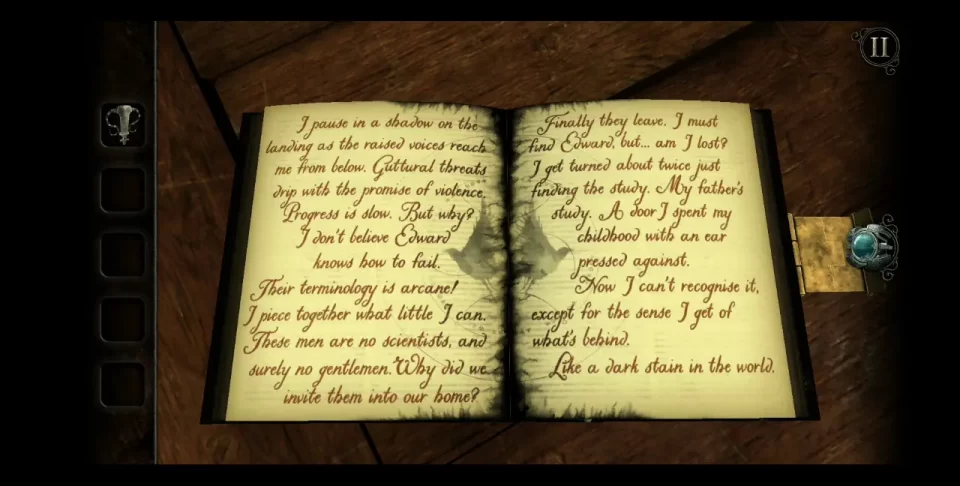 I pause in a shadow on the
landing as the raised voices reach
me from below. Guttural threats
drip with the promise of violence.
Progress is slow. But why?
I don't believe Edward
knows how to fail.
Their terminology is arcane!
I piece together what little I can.
These men are no scientists, and
surely no gentlemen. Why did we
invite them into our home?
Finally they leave. I must
find Edward, but... am I lost?
I get turned about twice just
finding the study. My father's
study. A door I spent my
childhood with an ear
pressed against.
Now I can't recognise it,
except for the sense I get of
what's behind.
Like a dark stain in the world.
II